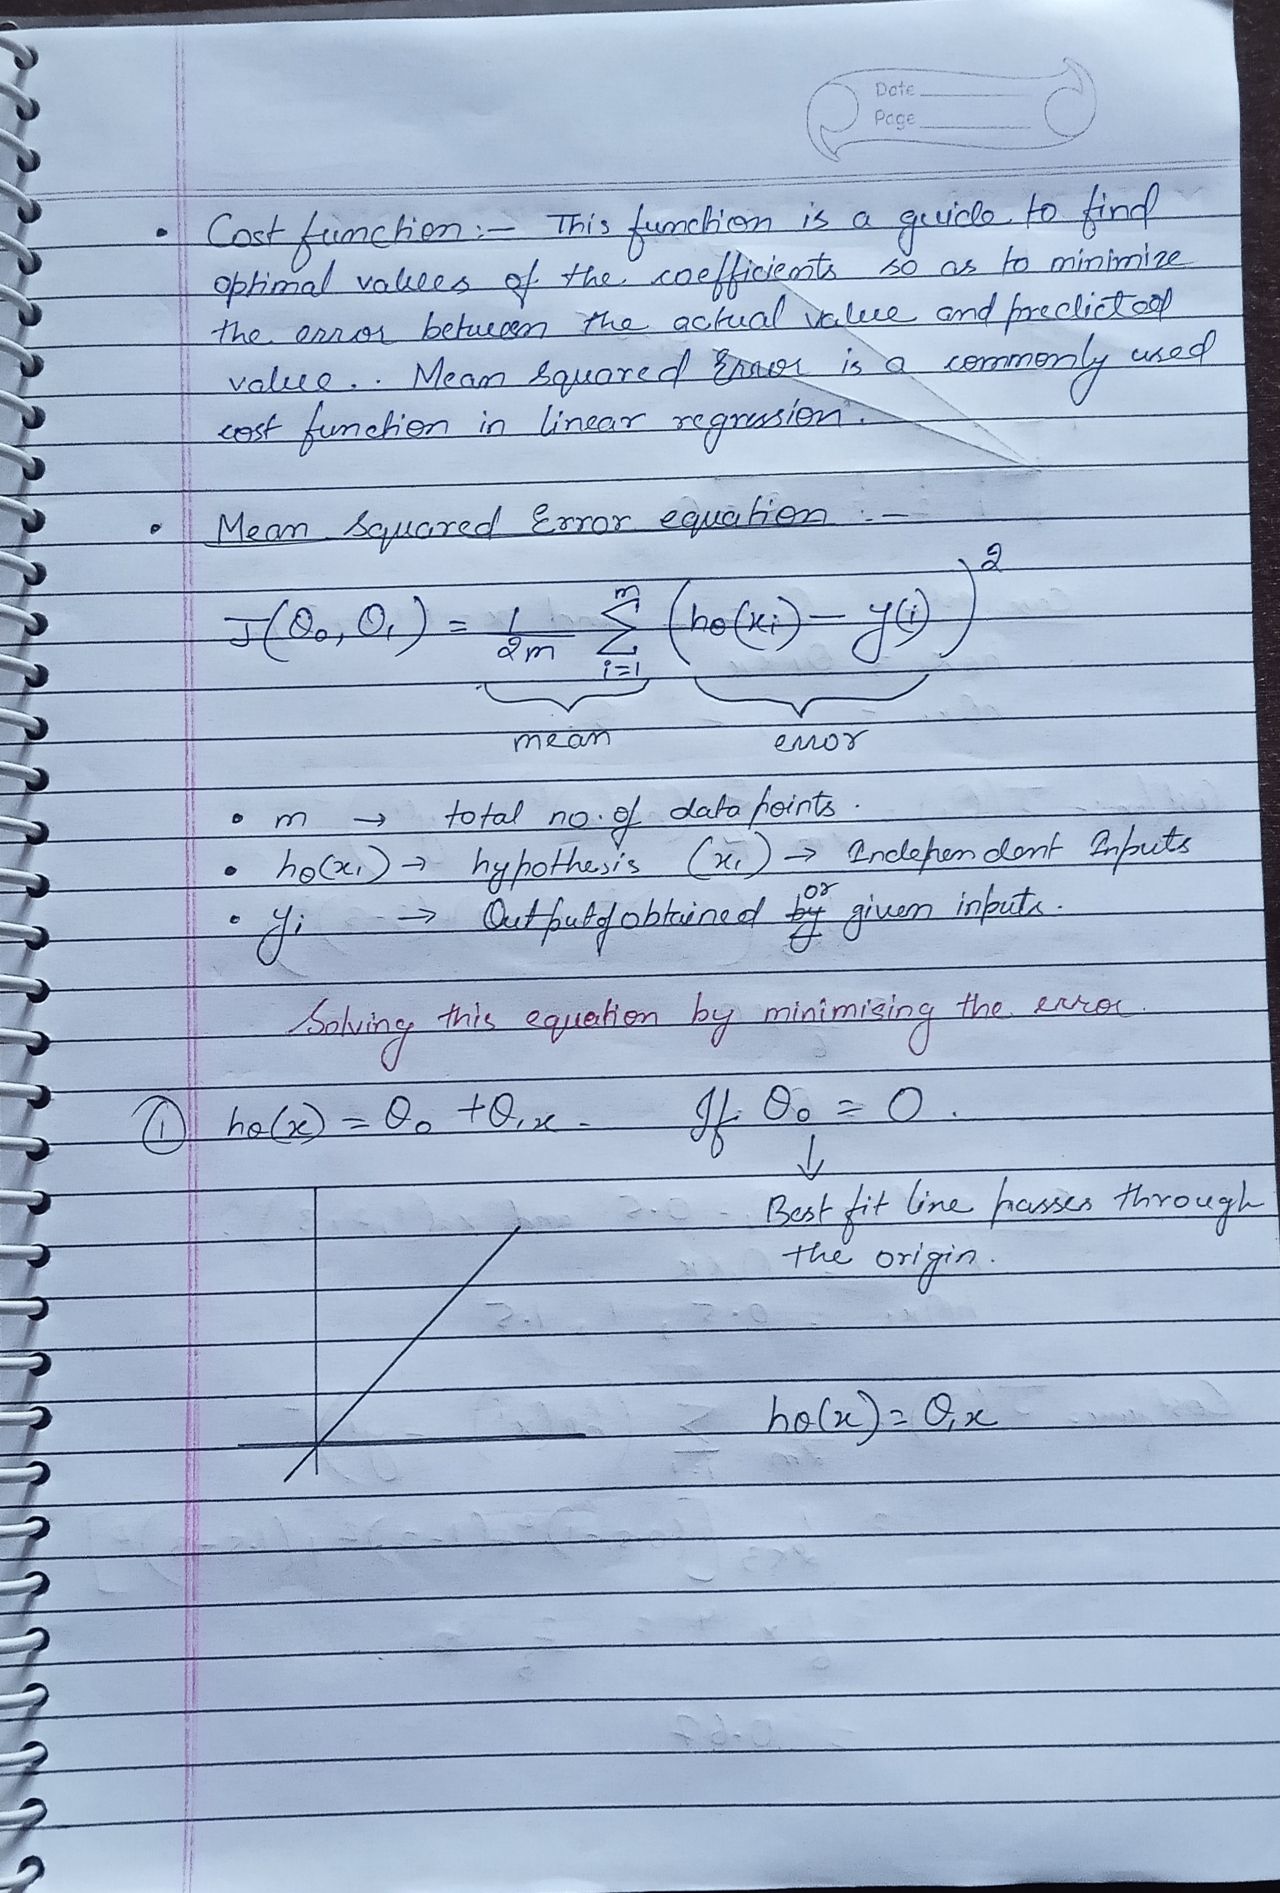 Date
Page
• Cost function:- This function is a guide to find
optimal values of the coefficients so as to minimize
the error between the actual value and predicted
value.. Mean Squared Error is a commonly used
cost function in linear regression.
• Mean Squared Error equation :-
J(θ₀, θ₁) = 1/2m Σ_{i=1}^{m} (hθ(xᵢ) - y(i))²
mean error
• m → total no. of data points.
• hθ(xᵢ) → hypothesis (xᵢ) → Independent Inputs
• yᵢ → Output obtained by or given inputs.
Solving this equation by minimizing the error.
① hθ(x) = θ₀ + θ₁x. If θ₀ = 0.
↓
Best fit line passes through
the origin.
hθ(x) = θ₁x